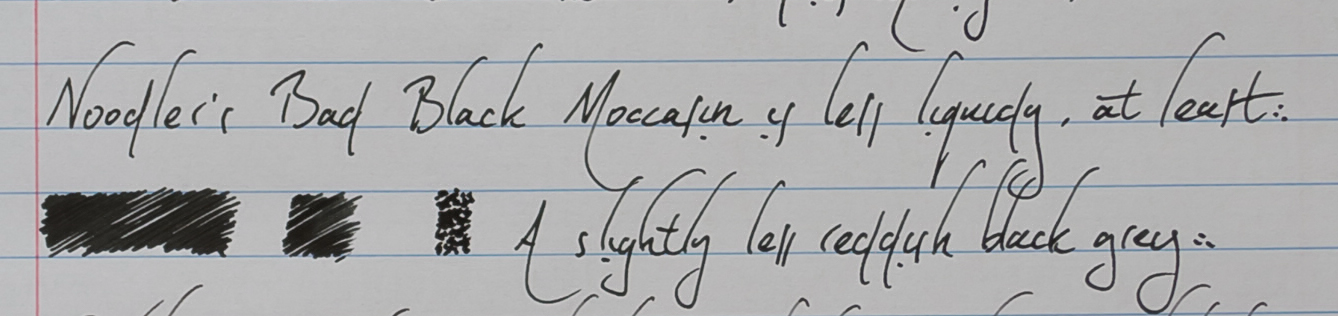 Noodler's Bad Black Moccasin is less liquidy, at least:.
A slightly less reddish black grey:.